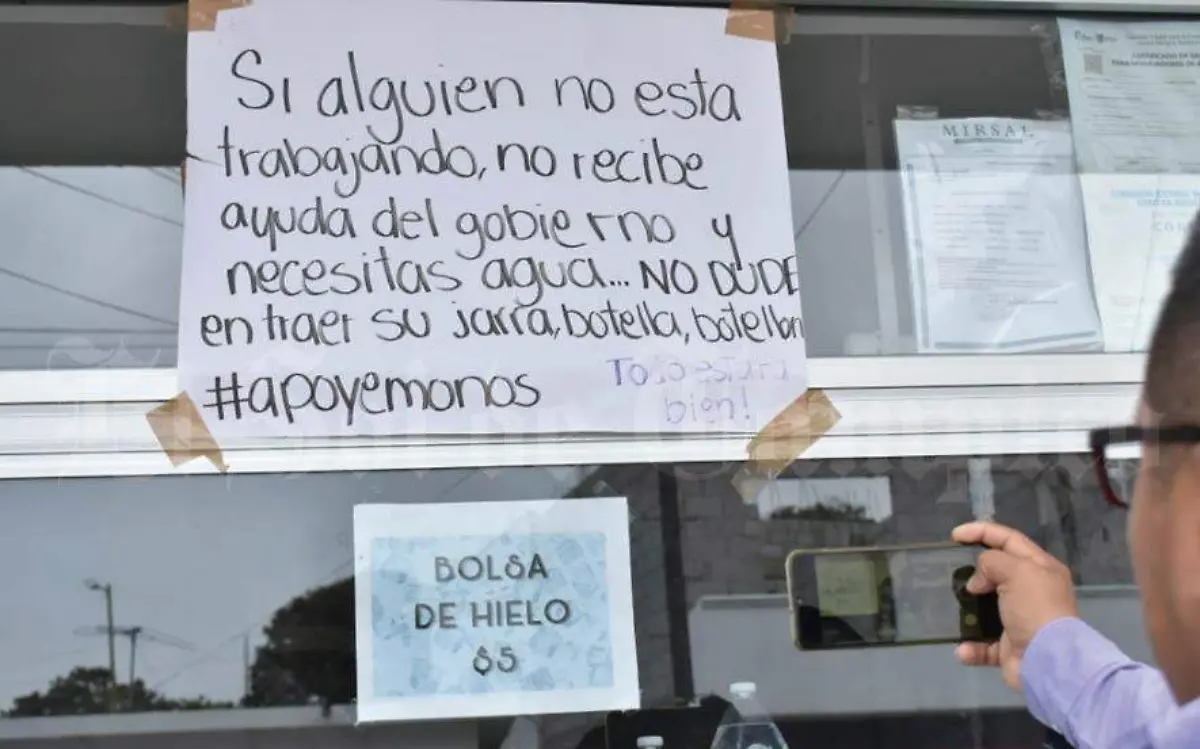 Si alguien no esta
trabajando, no recibe
ayuda del gobierno y
necesitas agua... NO DUDE
en traer su jarra, botella, botellon
#apoyemonos
Todo estara
bien!
MIRSAL
BOLSA
DE HIELO
$5